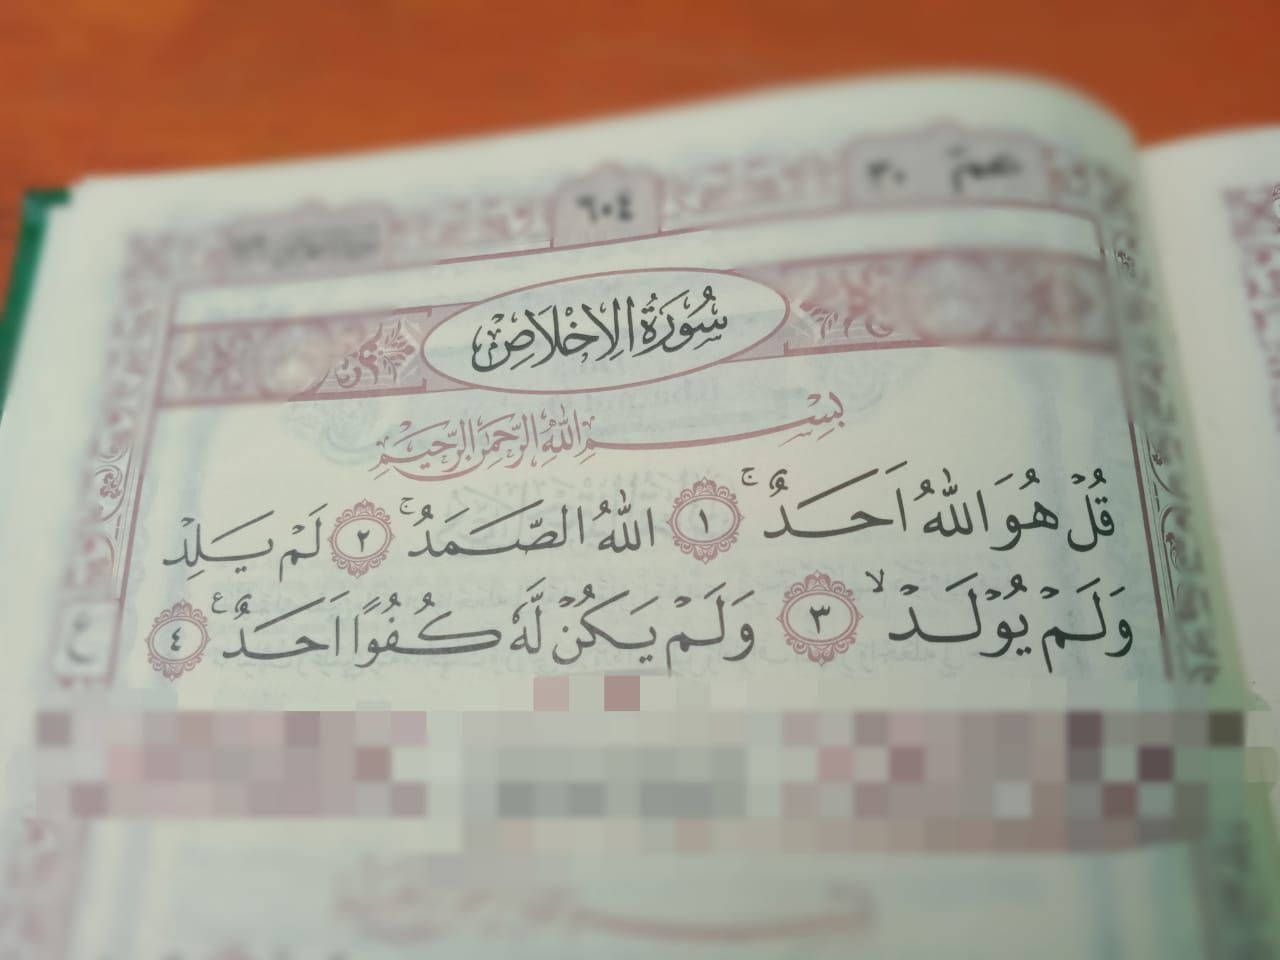 عم ٣٠
٦٠٤
سُوْرَةُ الْاِخْلَاصِ
بِسْمِ اللّٰهِ الرَّحْمٰنِ الرَّحِيْمِ
قُلْ هُوَ اللّٰهُ اَحَدٌ ۚ ١ اَللّٰهُ الصَّمَدُ ۚ ٢ لَمْ يَلِدْ
وَلَمْ يُوْلَدْ ۙ ٣ وَلَمْ يَكُنْ لَّهٗ كُفُوًا اَحَدٌ ࣖ ٤